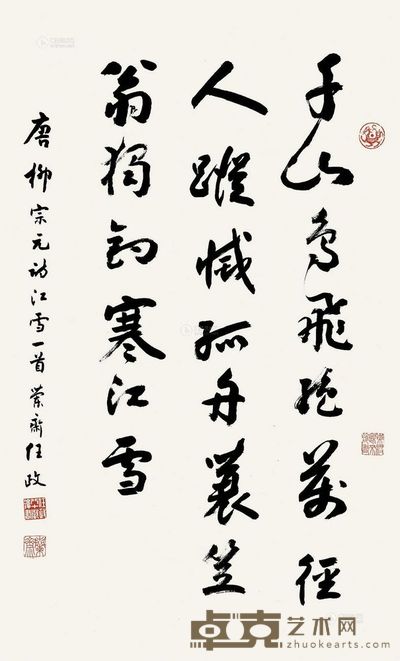 千山鳥飛絶萬徑
人蹤滅孤舟蓑笠
翁獨釣寒江雪
唐柳宗元詩江雪一首 蘭齋任政
卓克艺术网
zhuokearts.com